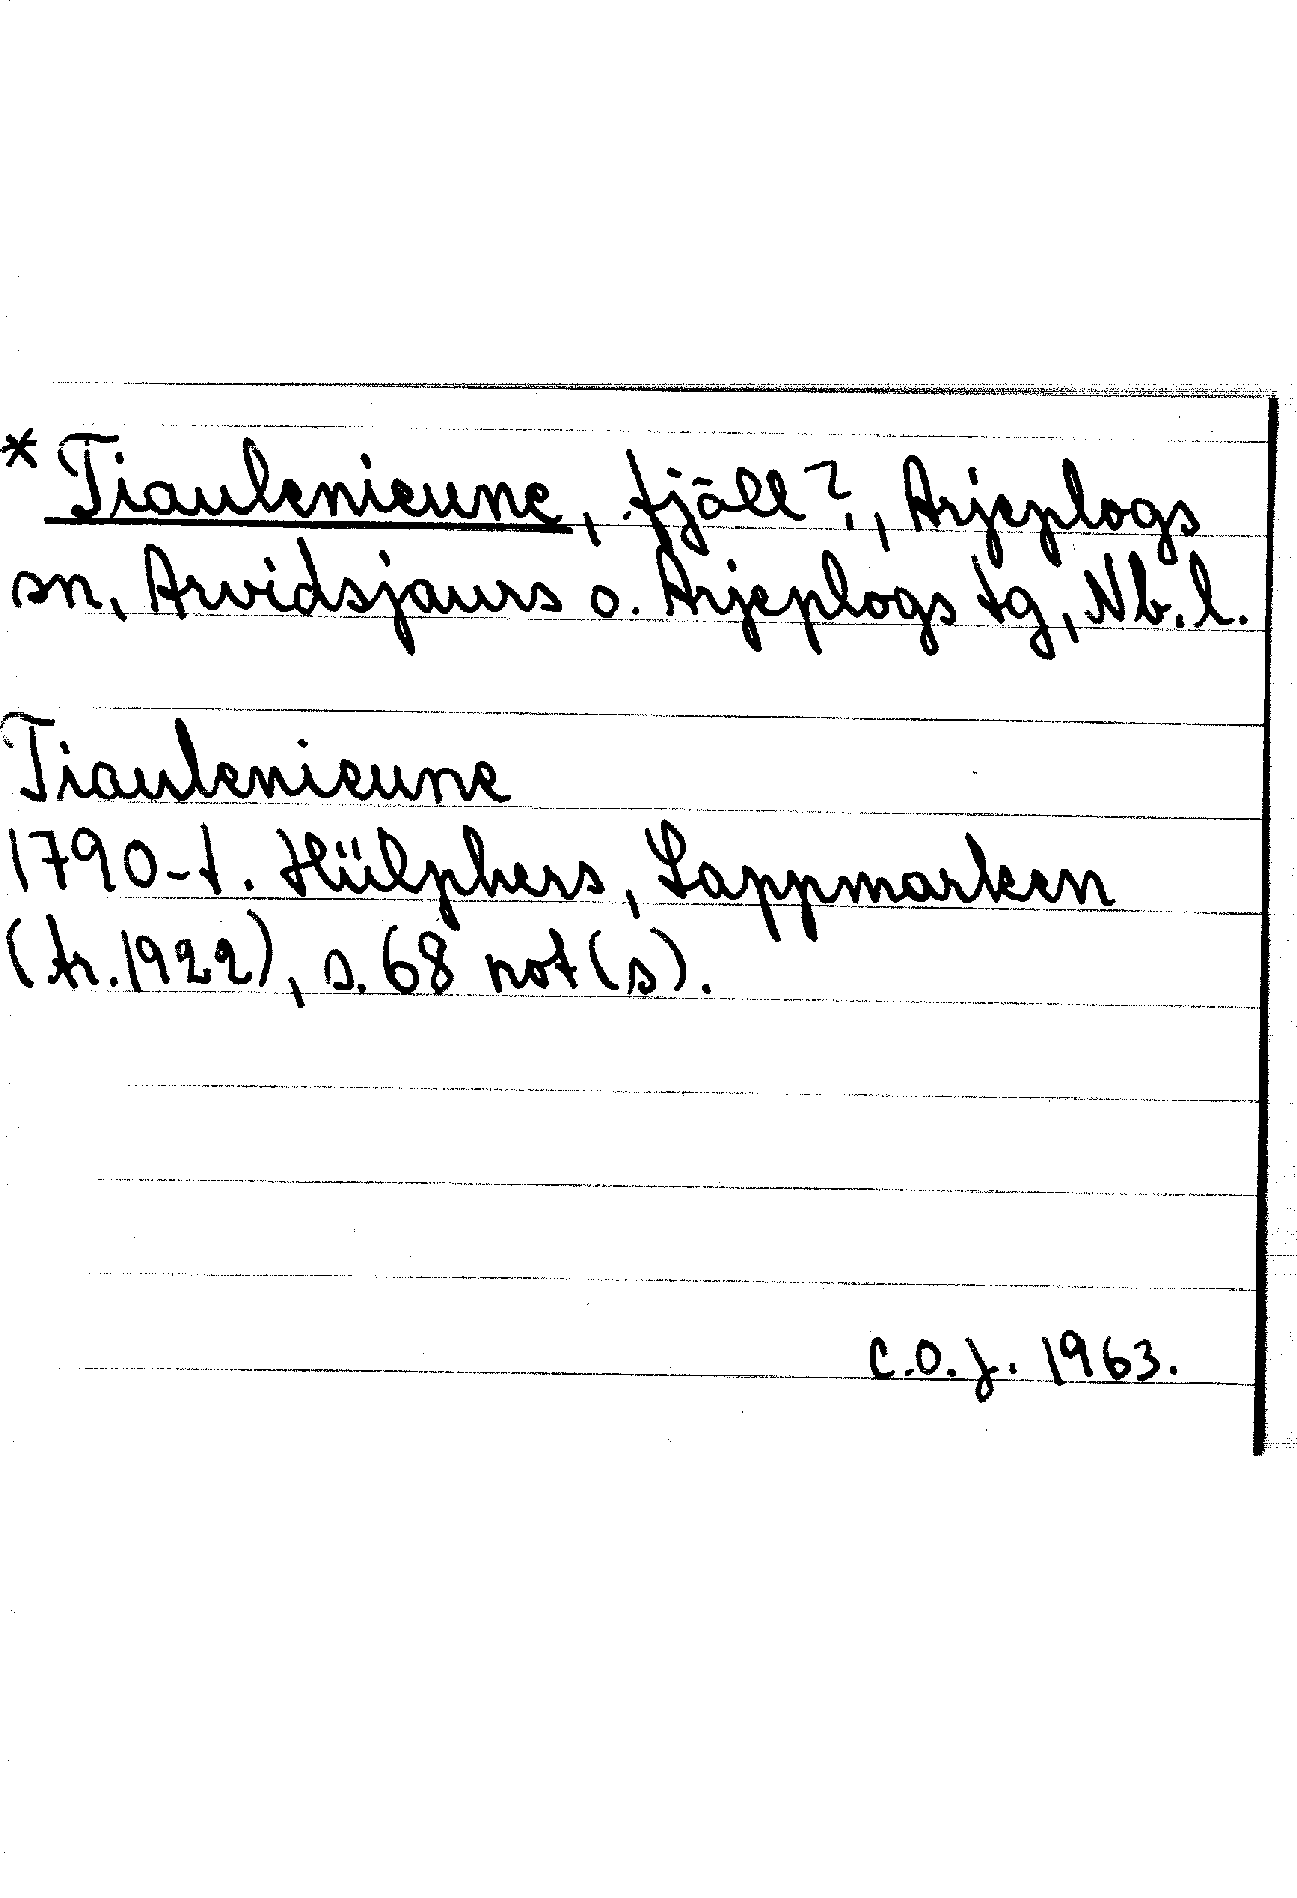 *Tiaulenieune, fjäll?, Arjeplogs
sn, Arvidsjaurs o. Arjeplogs tg, Nb.l.
Tiaulenieune
1790-t. Hülphers, Lappmarken
(tr. 1922), s. 68 not(s).
C.O.J. 1963.